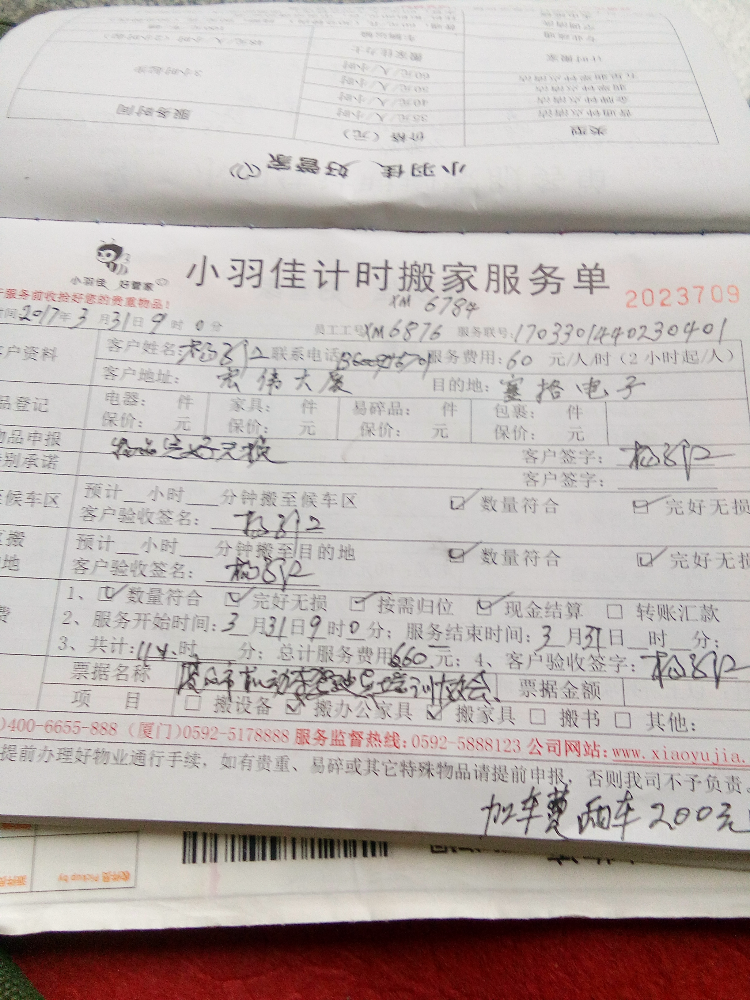 小羽佳 好管家
类型 价格（元） 服务时间
35元/人/小时
40元/人/小时
50元/人/小时
60元/人/小时 3小时起步
计时搬家 搬家佳力士
小羽佳 好管家
小羽佳计时搬家服务单
XM 6784
2023709
服务前收拾好您的贵重物品！
时间2017年3月31日9时0分 员工工号XM6876 服务联号:1703301440230401
户资料 客户姓名: 联系电话 服务费用:60元/人/时（2小时起/人）
客户地址： 宏伟大厦 目的地：赛格电子
品登记 电器： 件 家具： 件 易碎品： 件 包裹： 件
保价： 元 保价： 元 保价： 元 保价： 元
物品申报 物品完好无损 客户签字：
别承诺 客户签字：
候车区 预计__小时___分钟搬至候车区 ☑数量符合 ☑完好无损
客户验收签名：
搬 预计__小时___分钟搬至目的地 ☑数量符合 ☑完好无损
地 客户验收签名：
费 1、☑数量符合 ☑完好无损 ☑按需归位 ☑现金结算 □转账汇款
2、服务开始时间：3月31日9时0分；服务结束时间：3月31日__时__分；
3、共计:11人 时 分；总计服务费用660元；4、客户验收签字：
票据名称 票据金额
项 目 □搬设备 ☑搬办公家具 ☑搬家具 □搬书 □其他：
)400-6655-888 (厦门)0592-5178888 服务监督热线:0592-5888123 公司网站:www.xiaoyujia.
提前办理好物业通行手续，如有贵重、易碎或其它特殊物品请提前申报，否则我司不予负责。
加车费 两车200元
Pickup by